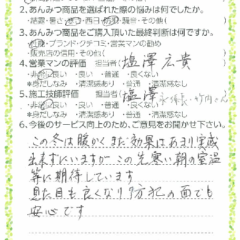 2.あんみつ商品を選ばれた際の悩みは何でしたか。
・結露・暑さ・西日・防犯・騒音・その他( )
3.あんみつ商品をご購入頂いた最終判断は何ですか。
・ブランド・クチコミ・営業マンの勧め
・販売店の信用・その他( )
4.営業マンの評価 担当者( 塩澤宏貴 )
良い ・良い ・普通 ・良くない
※身だしなみ ・清潔感あり ・普通 ・清潔感なし
5.施工技師評価 担当者( 塩澤 )
良い ・良い ・普通 ・良くない
※身だしなみ ・清潔感あり ・普通 ・清潔感なし
6.今後のサービス向上のため、ご意見をお聞かせ下さい。
この冬は暖かくまだ効果はあまり実感
出来ずにいますがこの先寒い朝の室温
等に期待しています
見た目も良くなり防犯の面でも
安心です